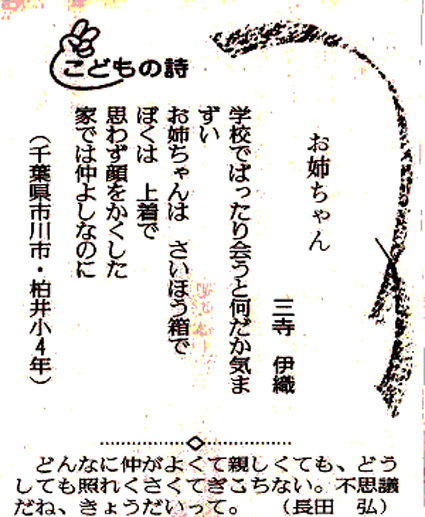 こどもの詩
お姉ちゃん
三寺 伊織
学校でばったり会うと何だか気ま
ずい
お姉ちゃんは さいほう箱で
ぼくは 上着で
思わず顔をかくした
家では仲よしなのに
(千葉県市川市・柏井小4年)
どんなに仲がよくて親しくても、どう
しても照れくさくてぎこちない。不思議
だね、きょうだいって。 (長田 弘)